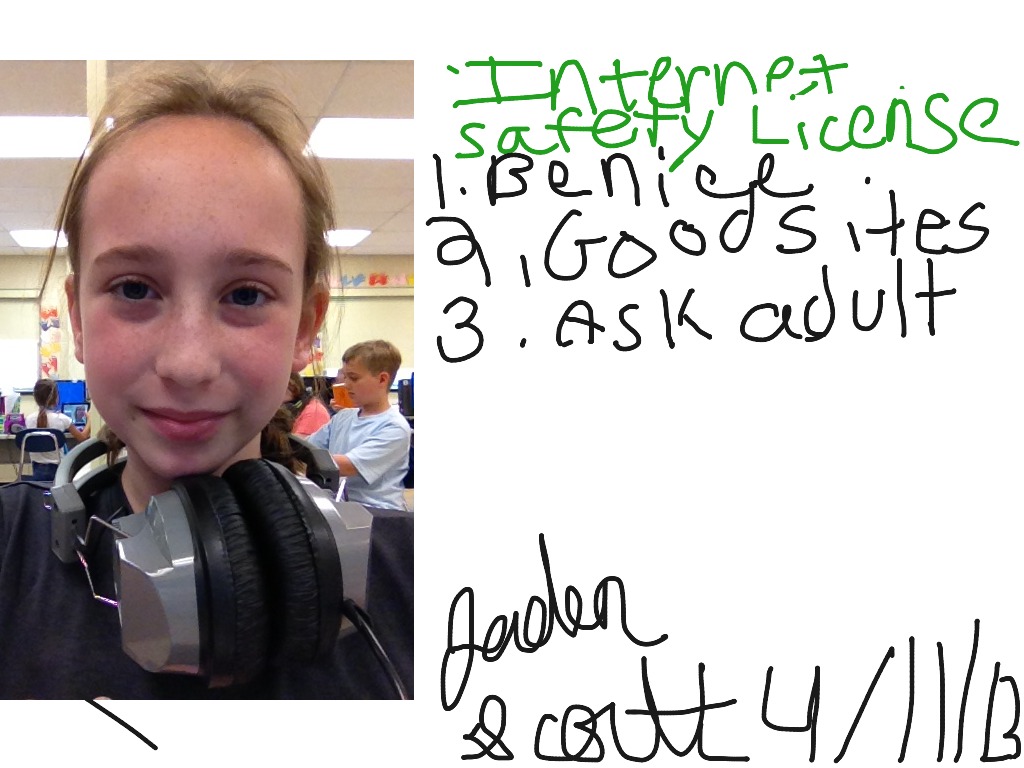 Internet
safety License
1. Be nice
2. Good sites
3. Ask adult
Jaden
Scott 4/11/13